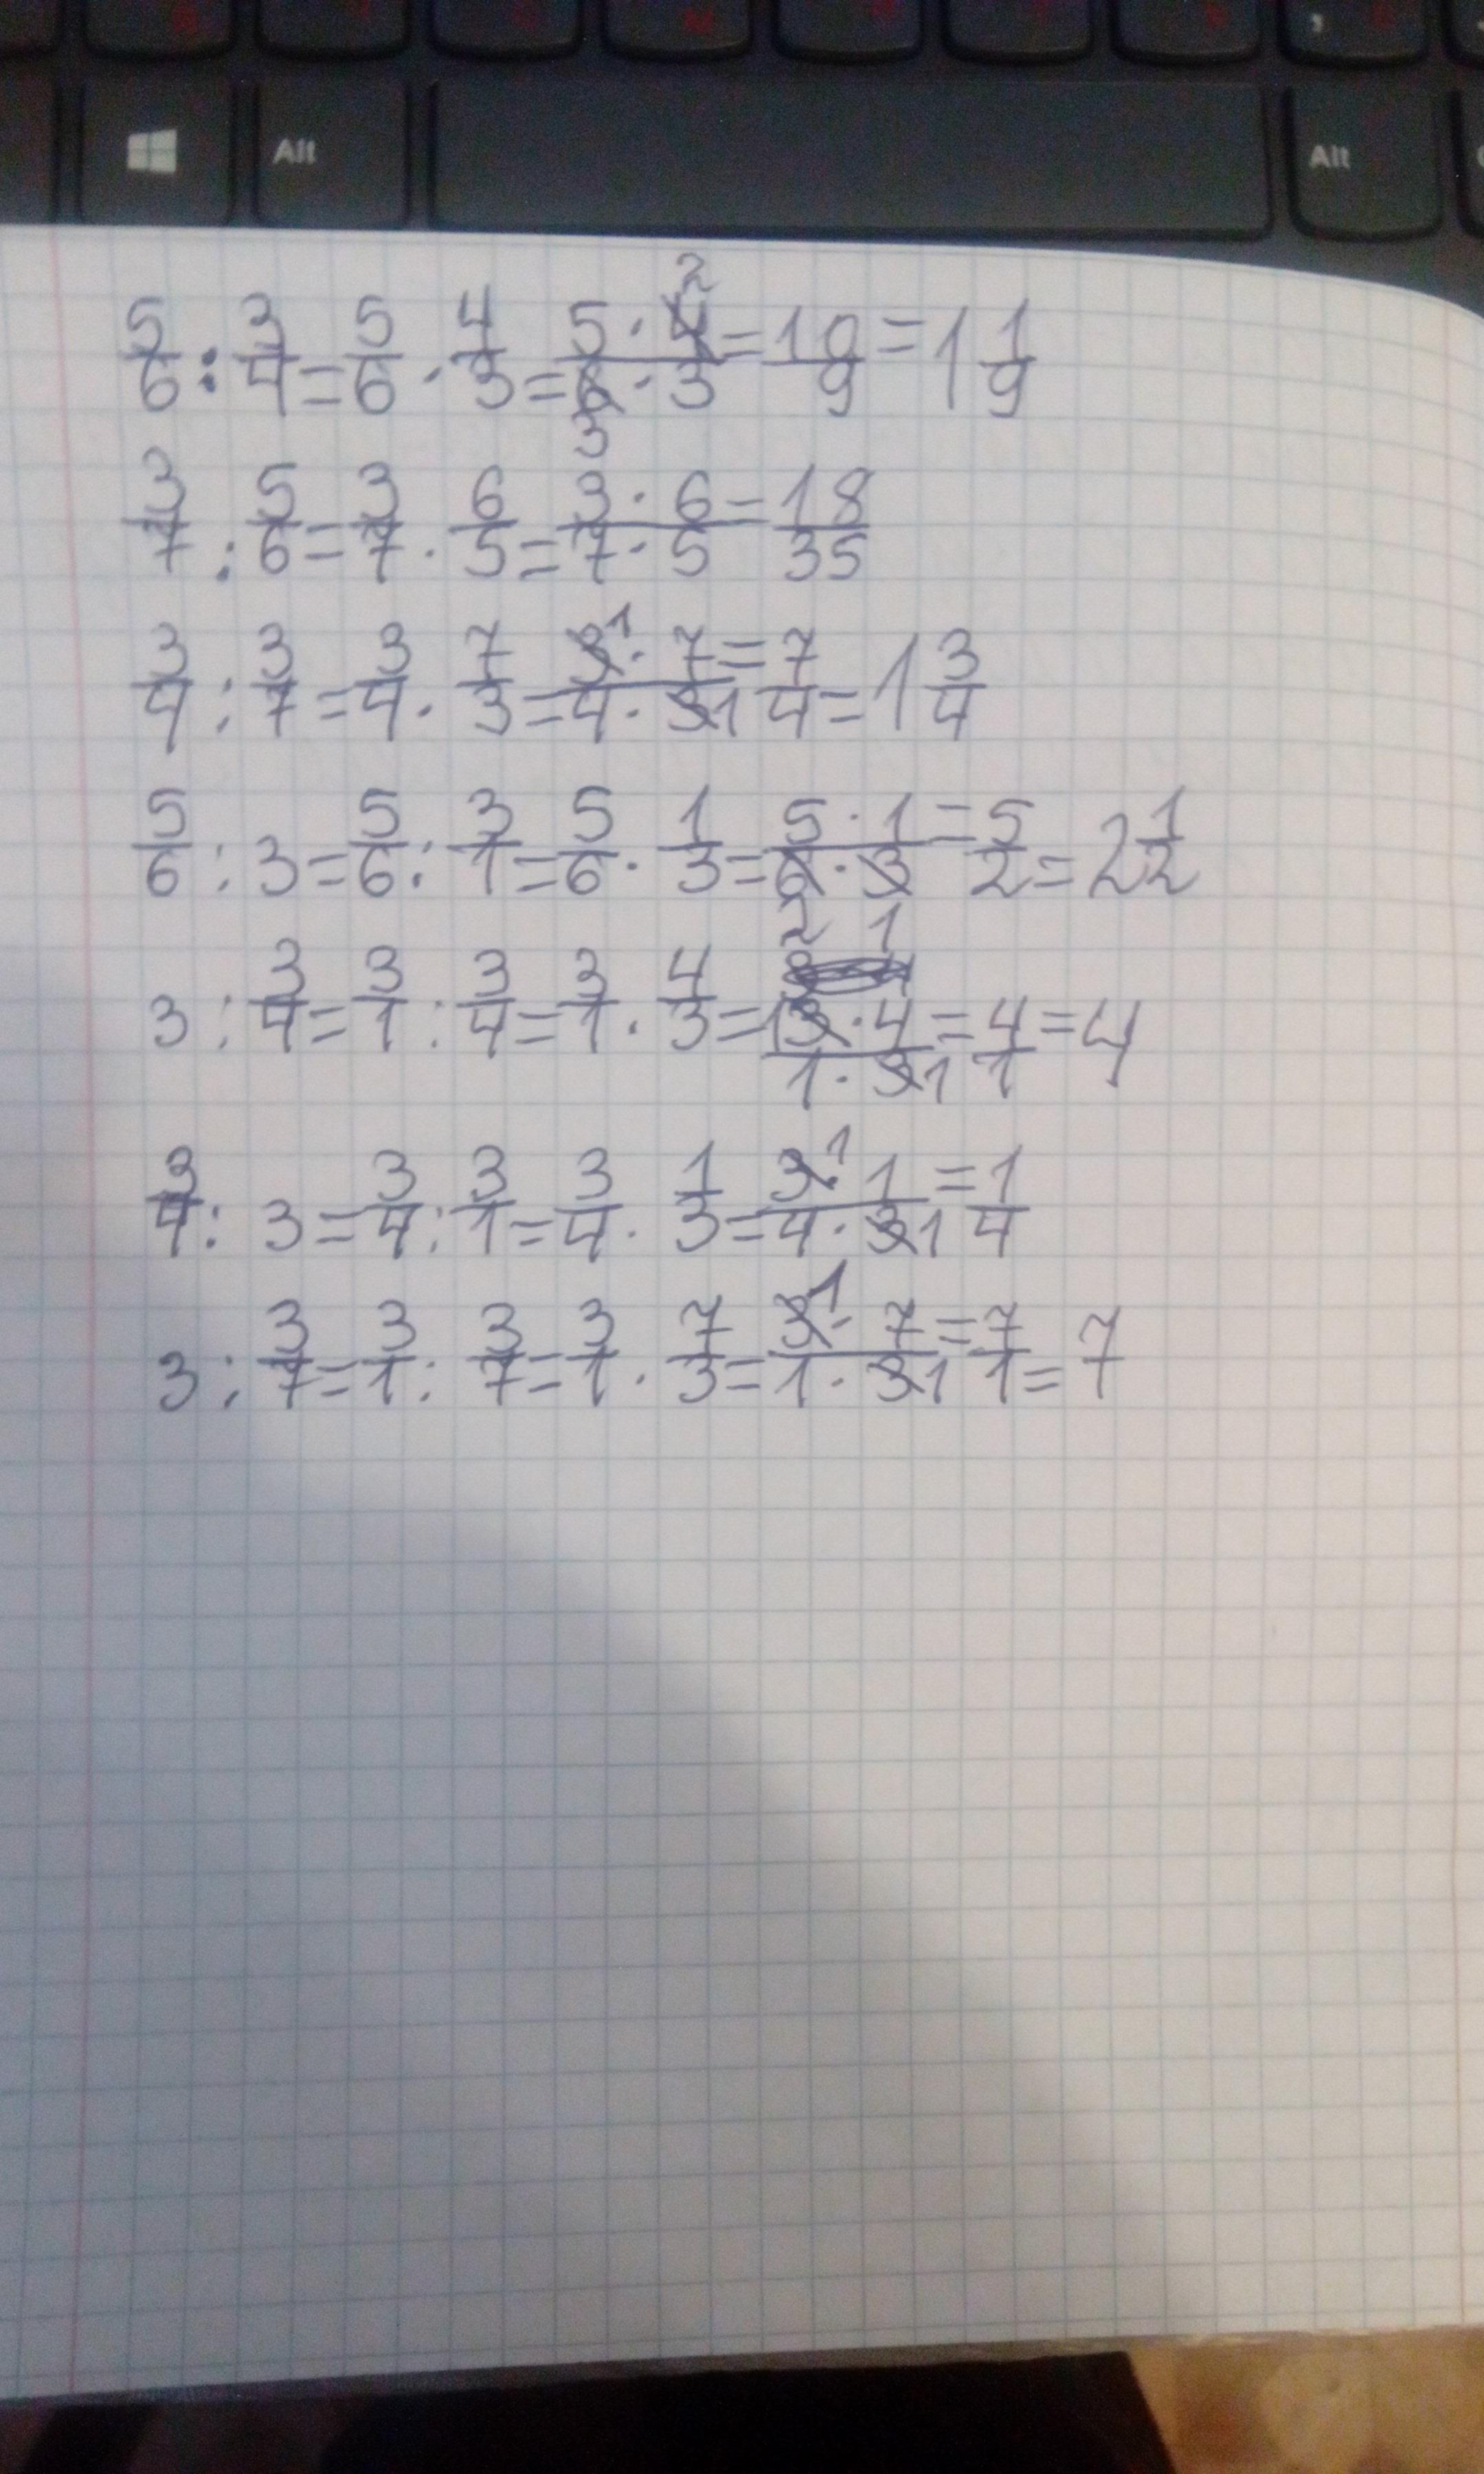 Alt Alt
5/6 : 3/4 = 5/6 · 4/3 = 5·4 2/6·3 3 = 10/9 = 1 1/9
3/7 : 5/6 = 3/7 · 6/5 = 3·6/7·5 = 18/35
3/4 : 3/7 = 3/4 · 7/3 = 3 1·7/4·3 1 = 7/4 = 1 3/4
5/6 : 3 = 5/6 : 3/1 = 5/6 · 1/3 = 5·1/6·3 2 1 = 5/2 = 2 1/2
3 : 3/4 = 3/1 : 3/4 = 3/1 · 4/3 = 1 3·4/1·3 1 = 4/1 = 4
3/4 : 3 = 3/4 : 3/1 = 3/4 · 1/3 = 3 1·1/4·3 1 = 1/4
3 : 3/7 = 3/1 : 3/7 = 3/1 · 7/3 = 3 1·7/1·3 1 = 7/1 = 7